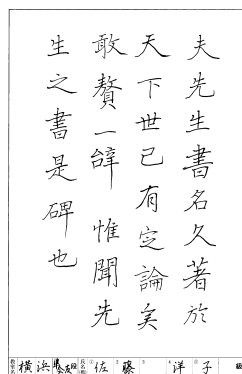 夫先生書名久著於
天下世已有定論矣
敢贅一辭 惟聞先
生之書是碑也
横浜 段級 氏名 佐藤 洋子